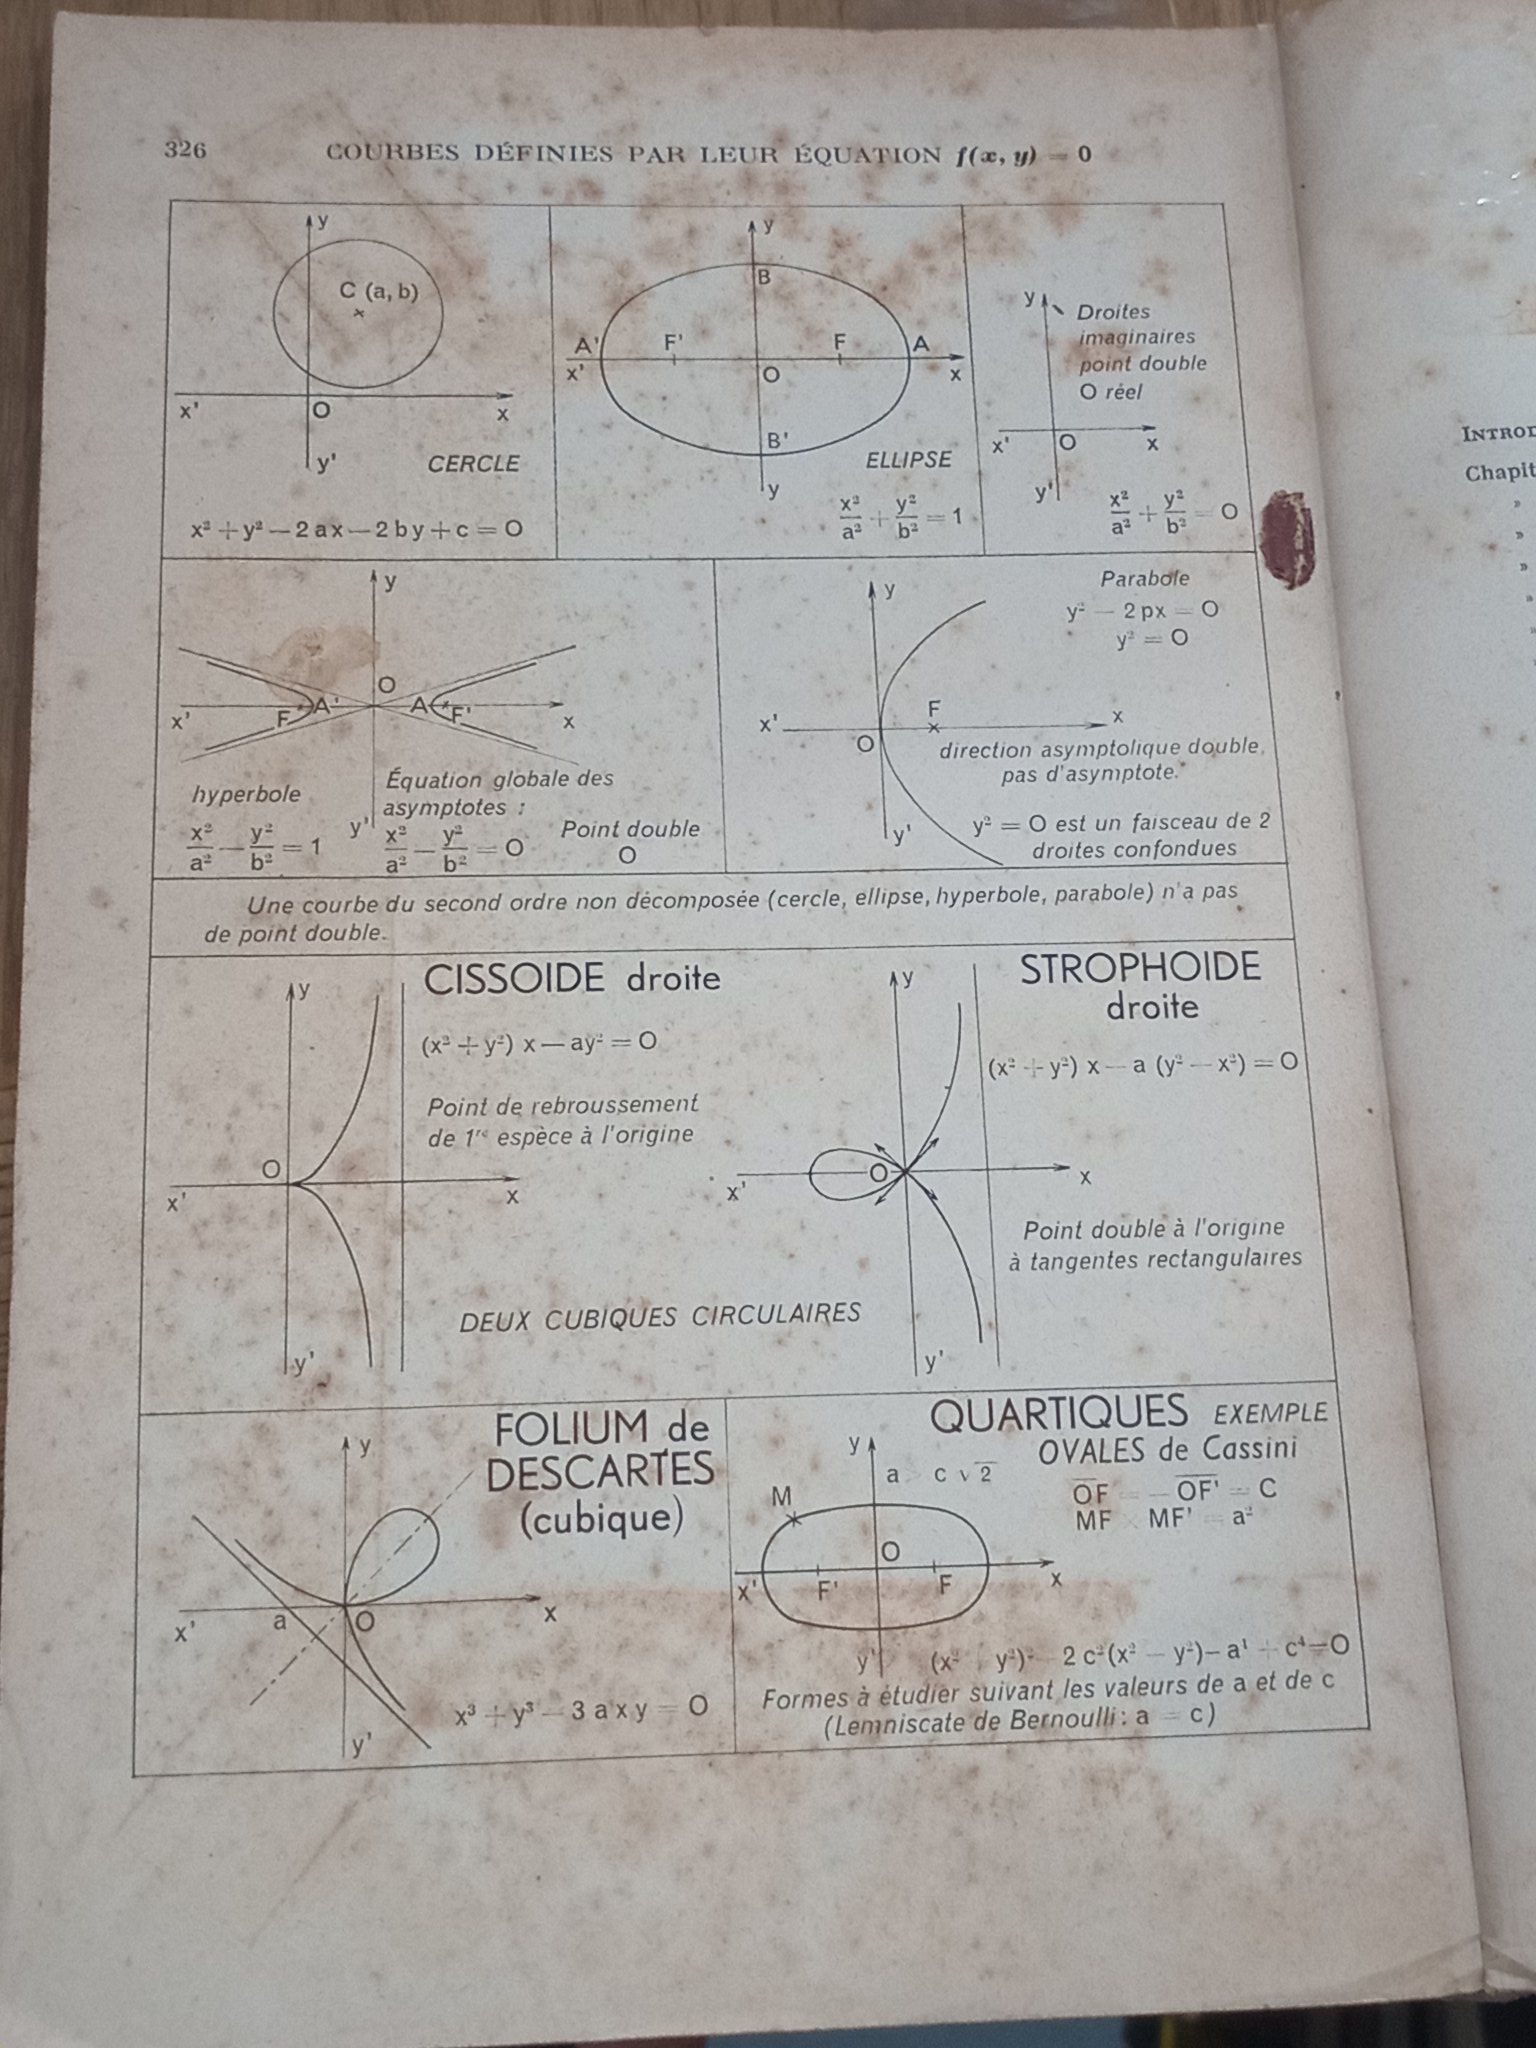 326 COURBES DÉFINIES PAR LEUR ÉQUATION f(x, y) = 0
y
C (a, b)
x' O x
y'
CERCLE
x² + y² — 2 ax — 2 by + c = O
y
B
A' F' F A
x' O x
B'
y
ELLIPSE
x²/a² + y²/b² = 1
y
Droites
imaginaires
point double
O réel
x' O x
y'
x²/a² + y²/b² = O
y
O
F A' A F'
x' x
y'
hyperbole
x²/a² — y²/b² = 1
Équation globale des
asymptotes :
x²/a² — y²/b² = O
Point double
O
y
Parabole
y² — 2 px = O
y² = O
F
x' O x
direction asymptolique double,
pas d'asymptote.
y'
y² = O est un faisceau de 2
droites confondues
Une courbe du second ordre non décomposée (cercle, ellipse, hyperbole, parabole) n'a pas
de point double.
CISSOIDE droite
y
(x² + y²) x — ay² = O
Point de rebroussement
de 1re espèce à l'origine
O
x' x
y'
STROPHOIDE
droite
y
(x² + y²) x — a (y² — x²) = O
O
x' x
Point double à l'origine
à tangentes rectangulaires
y'
DEUX CUBIQUES CIRCULAIRES
FOLIUM de
DESCARTES
(cubique)
y
x' a O x
y'
x³ + y³ — 3 a x y = O
QUARTIQUES EXEMPLE
OVALES de Cassini
y
a c √2
OF = — OF' = C
MF × MF' = a²
M
O
x' F' F x
y'
(x² y²)² 2 c² (x² — y²) — a⁴ + c⁴ = O
Formes à étudier suivant les valeurs de a et de c
(Lemniscate de Bernoulli : a = c)
INTROD
Chapit
»
»
»
»
»